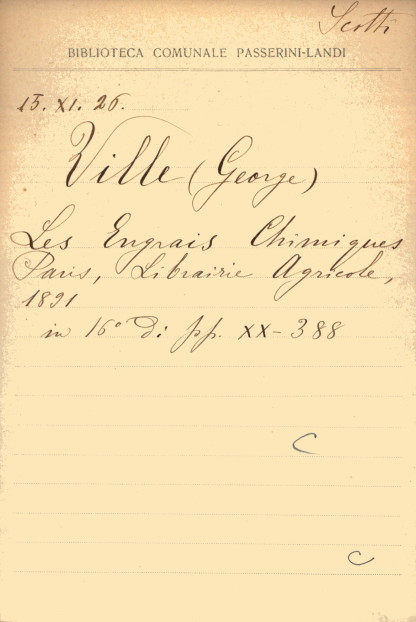 Scotti
BIBLIOTECA COMUNALE PASSERINI-LANDI
15. XI. 26.
Ville (George)
Les Engrais Chimiques
Paris, Librairie Agricole,
1891
in 16° di pp. XX-388
C
C